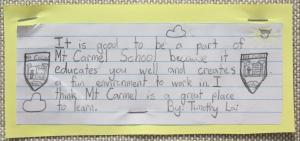 It is good to be a part of
Mt Carmel School because it
educates you well and creates
a fun environment to work in I
think Mt Carmel is a great place
to learn. By: Timothy Lai